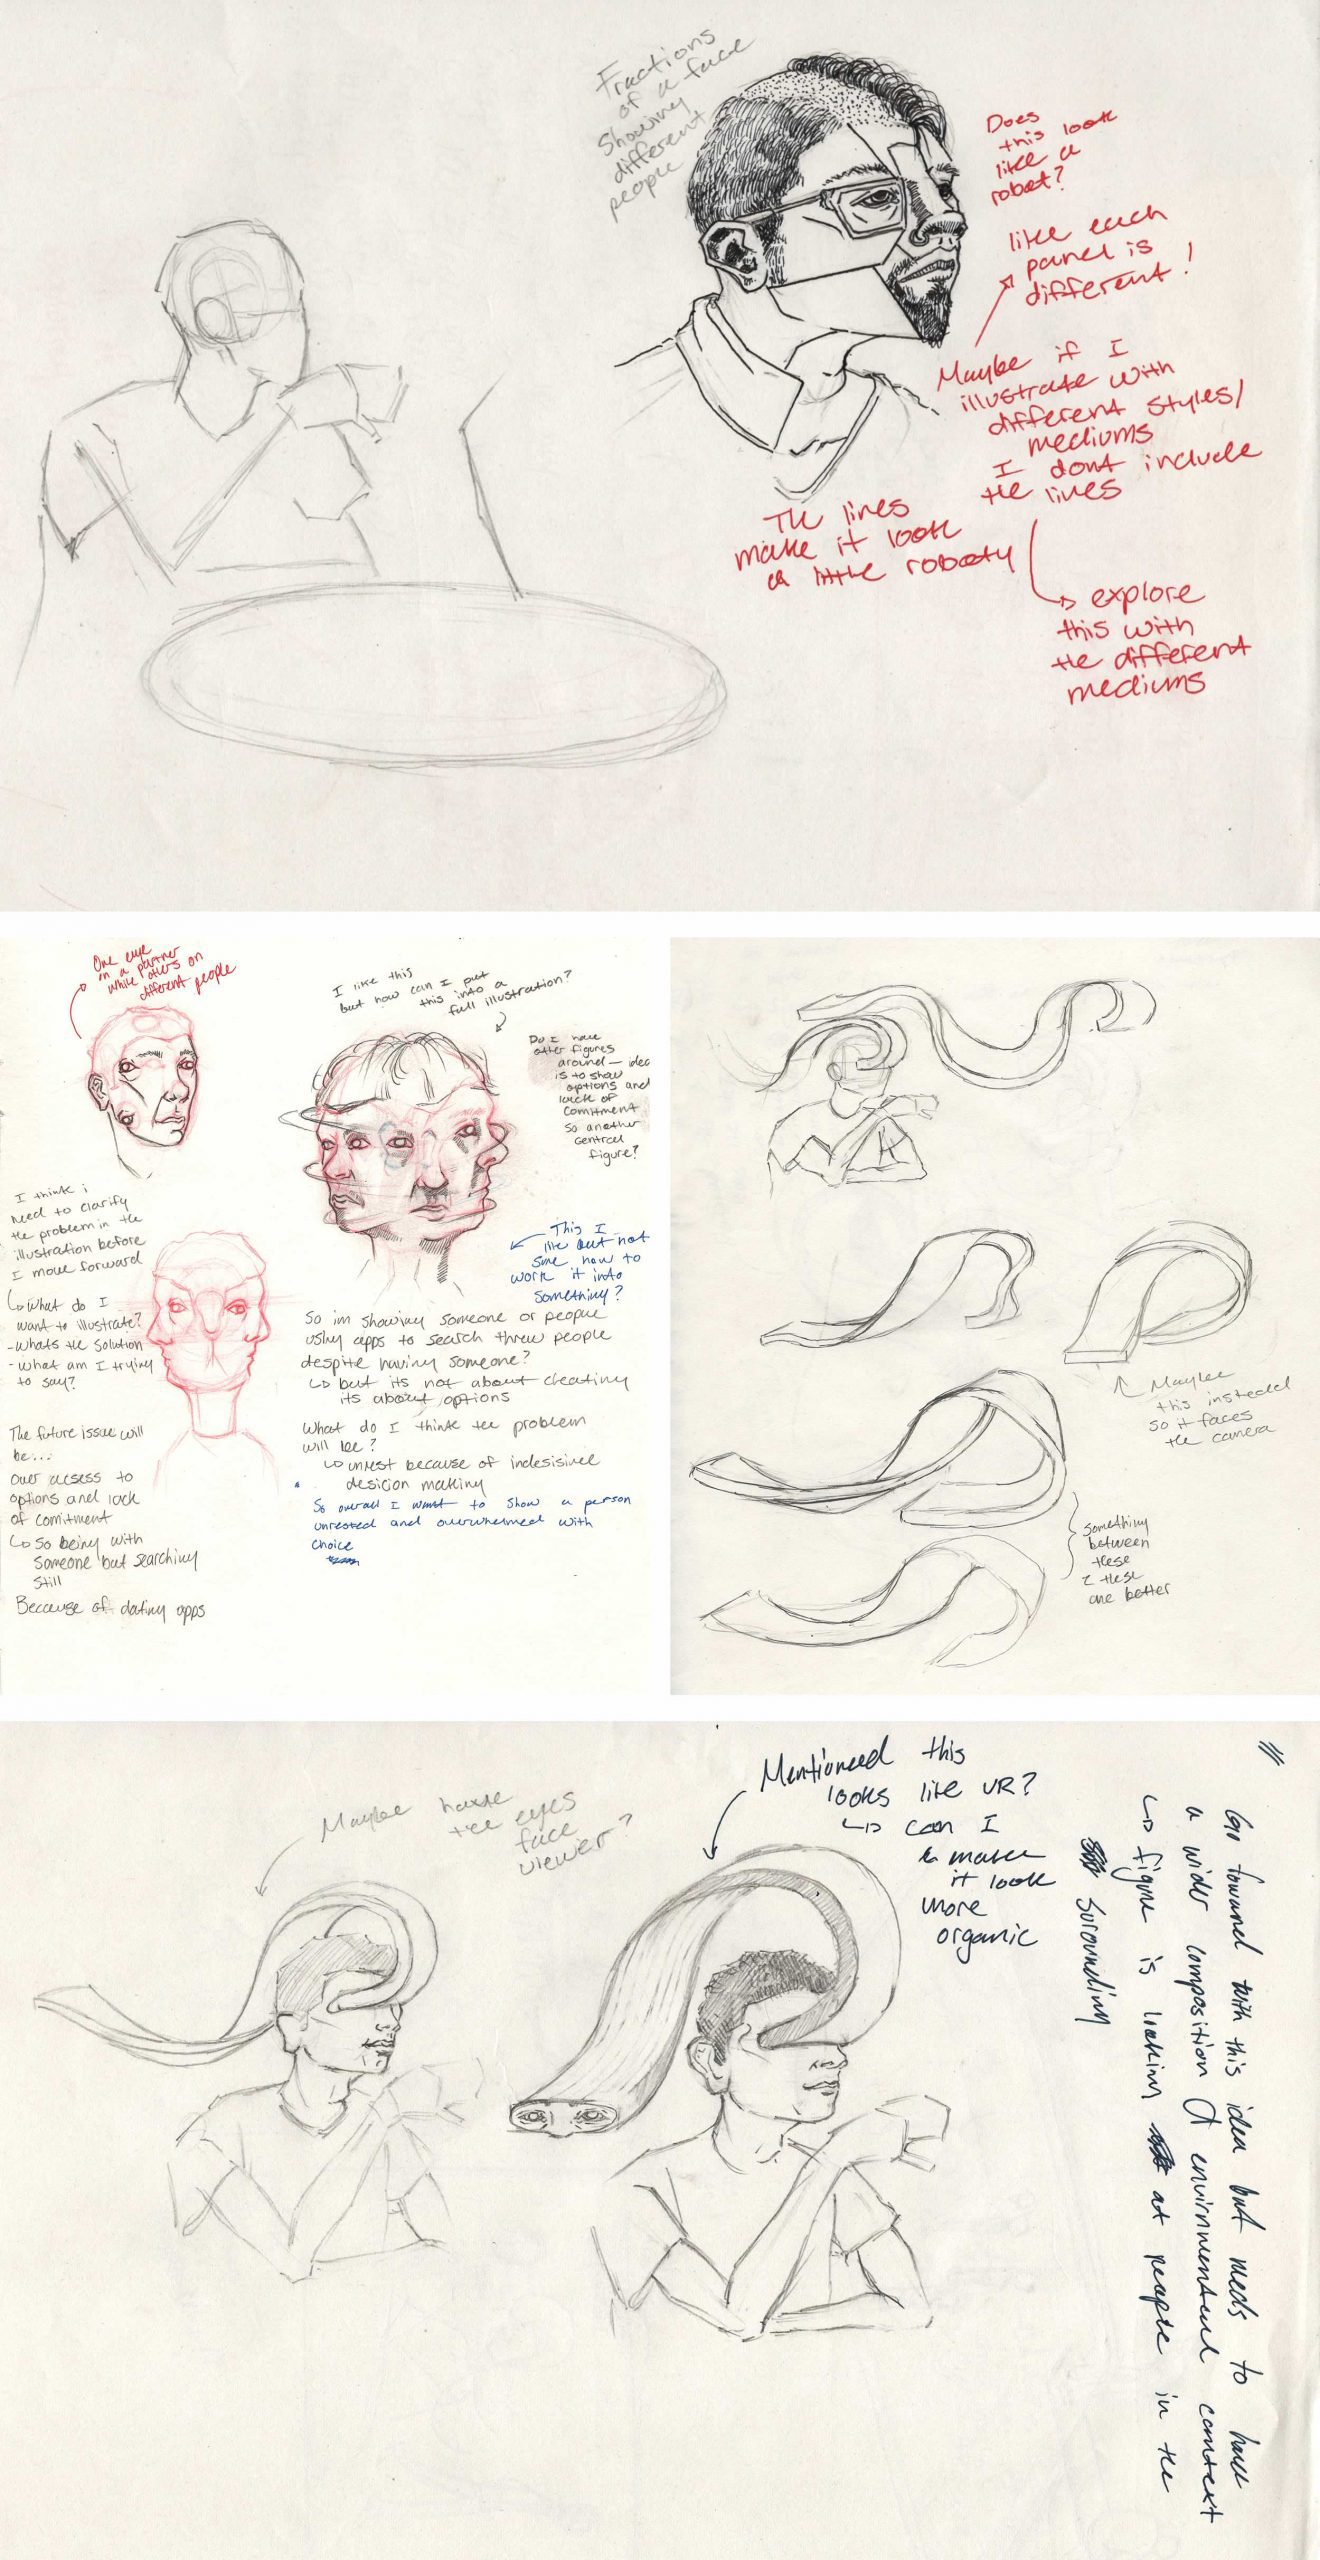 Fractions
of a face
Showing
different
people
Does
this look
like a
robot?
like each
panel is
different!
Maybe if I
illustrate with
different styles/
mediums
I dont include
the lines
The lines
make it look
a little roboty
explore
this with
the different
mediums
One eye
on a partner
while others on
different people
I like this
but how can I put
this into a
full illustration?
Do I have
other figures
around - idea
is to show
options and
lack of
comitment
so another
central
figure?
I think i
need to clarify
the problem in the
illustration before
I move forward
What do I
want to illustrate?
- whats the solution
- what am I trying
to say?
This I
like but not
sure how to
work it into
something?
The future issue will
be...
over access to
options and lack
of comitment
So being with
someone but searching
still
Because of dating apps
So im showing someone or people
using apps to search threw people
despite having someone?
but its not about cheating
its about options
What do I think the problem
will be?
unrest because of indesisive
desicion making
So overall I want to show a person
unrested and overwhelmed with
choice
Maybe
this instead
so it faces
the camera
Something
between
these
2 these
are better
Maybe have
the eyes
face
viewer?
Mentioned this
looks like VR?
can I
make
it look
more
organic
Go toward with this idea but needs to have
a wider composition & environmental context
figure is looking at people in the
surounding